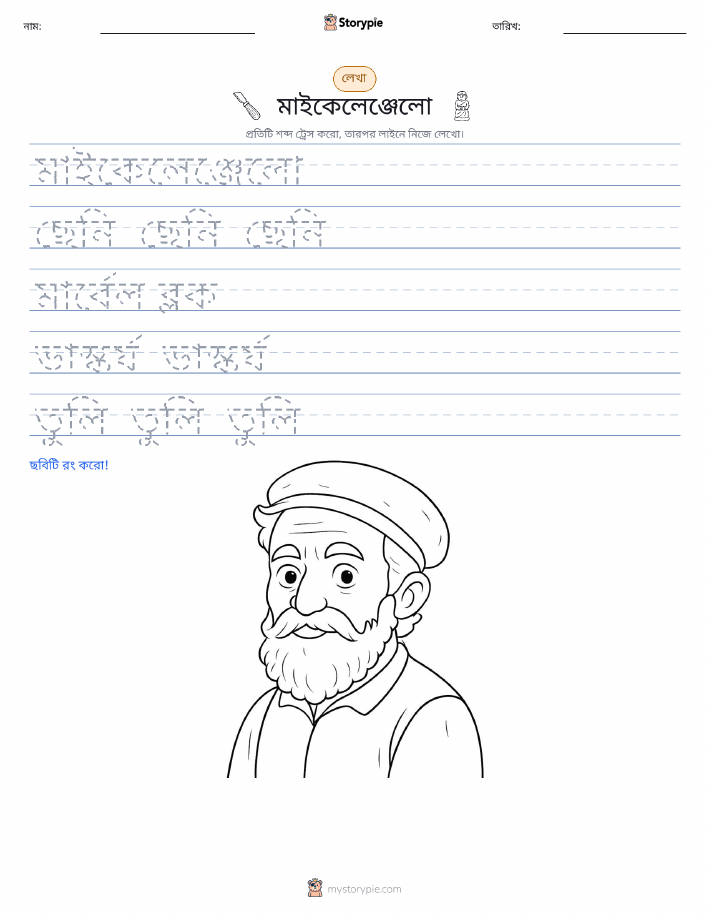 নাম:
Storypie
তারিখ:
লেখা
মাইকেলেঞ্জেলো
প্রতিটি শব্দ ট্রেস করো, তারপর লাইনে নিজে লেখো।
মাইকেলেঞ্জেলো
ছেনি ছেনি ছেনি
মার্বেল ব্লক
ভাস্কর্য ভাস্কর্য
তুলি তুলি তুলি
ছবিটি রং করো!
mystorypie.com